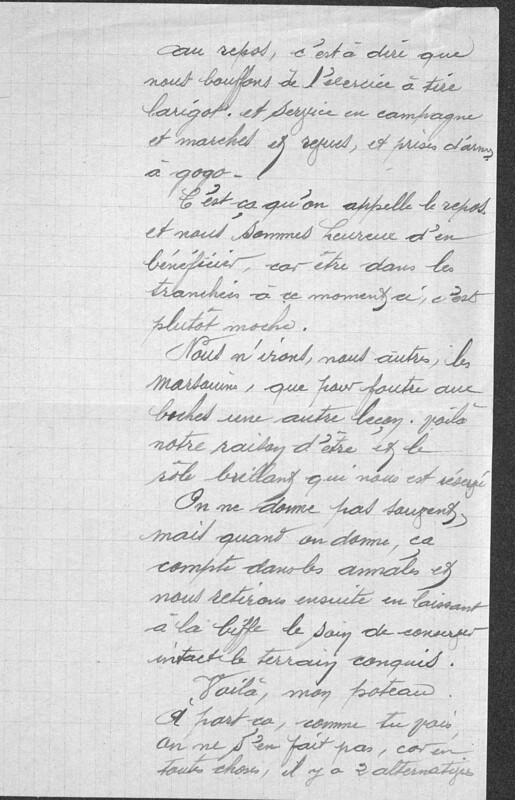 au repos, c'est à dire que
nous bouffons de l'exercice à tire
larigot. et service en campagne
et marches et revues, et prises d'armes
à gogo -
C'est ça qu'on appelle le repos.
et nous sommes heureux d'en
bénéficier, car être dans les
tranchées à ce moment ci, c'est
plutôt moche.
Nous n'irons, nous autres, les
marsouins, que pour foutre aux
boches une autre leçon. voilà
notre raison d'être et le
rôle brillant qui nous est réservé
On ne donne pas souvent,
mais quand on donne, ça
compte dans les annales et
nous retirons ensuite en laissant
à la biffe le soin de conserver
intact le terrain conquis.
Voilà, mon poteau.
A part ça, comme tu vois,
on ne s'en fait pas, car en
toutes choses, il y a 2 alternatives